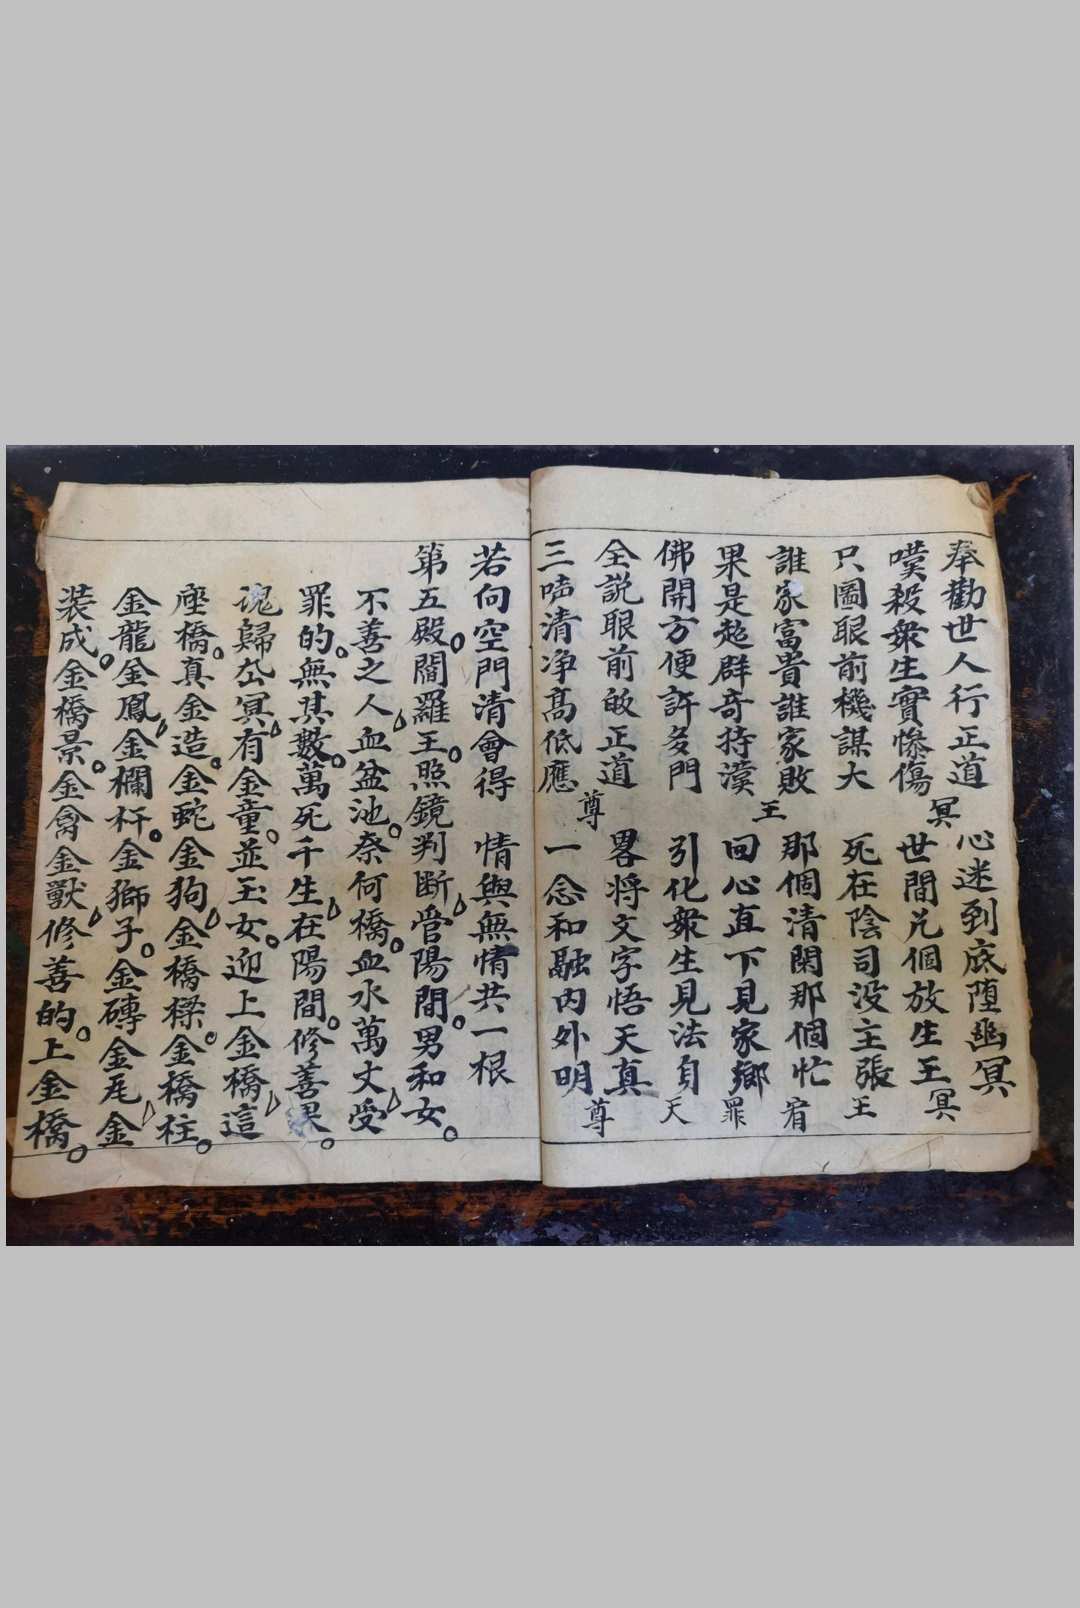 奉勸世人行正道 心迷到底墮幽冥
嘆殺衆生實慘傷 冥 世間几個放生王 冥
只圖眼前機謀大 死在陰司没主張 王
誰家富貴誰家敗 王 那個清閑那個忙 宥
果是超群奇持漢 回心直下見家鄉 罪
佛開方便許多門 引化衆生見法身 天
全説眼前的正道 畧将文字悟天真
三 清净髙低應 尊 一念和融内外明 尊
若向空門清會得 情與無情共一根
第五殿。閻羅王。照鏡判断管陽間。男和女。
不善之人血盆池。奈何橋。血水萬丈受
罪的。無其數。萬死千生在陽間。修善果。
魂歸 冥有金童。並玉女。迎上金橋這
座橋。真金造。金蛇金狗金橋樑。金橋柱。
金龍金鳳金欄杆。金獅子。金磚金瓦金
装成。金橋景。金禽金獸修善的。上金橋。